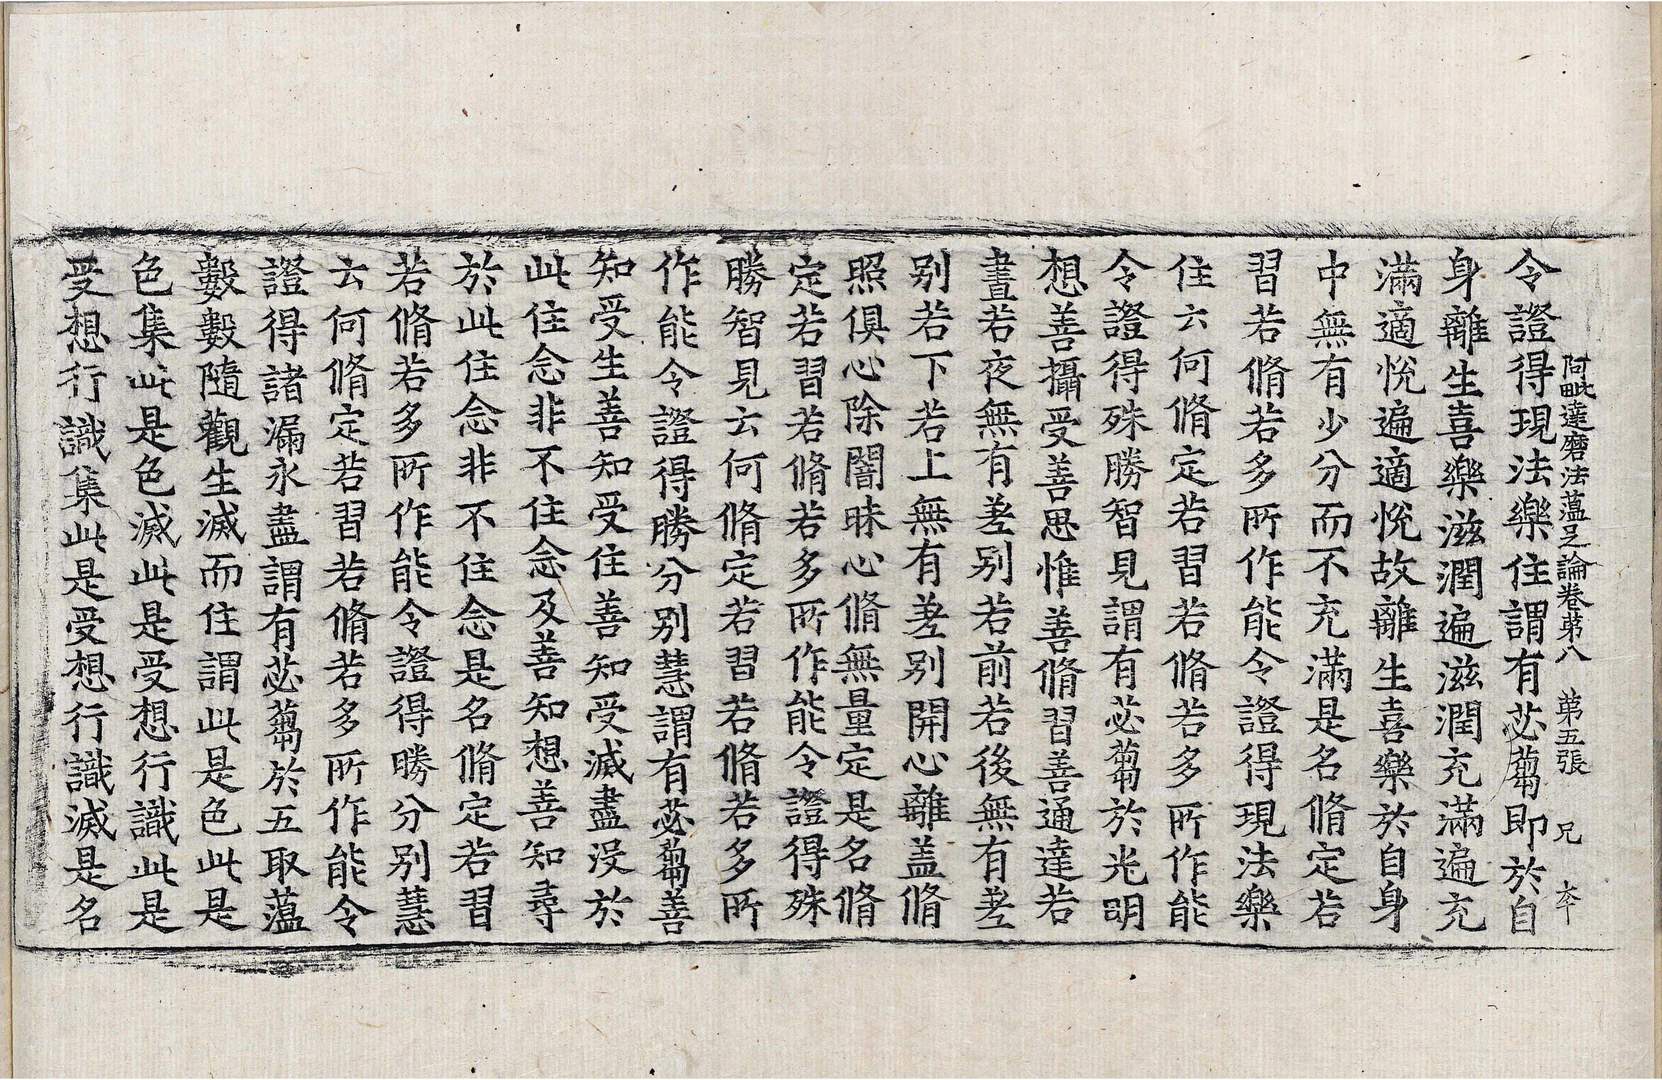 阿毗達磨法蘊足論卷第八　第五張　兄
令證得現法樂住謂有苾蒭即於自
身離生喜樂滋潤遍滋潤充滿遍充
滿適悅遍適悅故離生喜樂於自身
中無有少分而不充滿是名脩定若
習若脩若多所作能令證得現法樂
住云何脩定若習若脩若多所作能
令證得殊勝智見謂有苾蒭於光明
想善攝受善思惟善脩習善通達若
晝若夜無有差別若前若後無有差
别若下若上無有差别開心離盖脩
照俱心除闇昧心脩無量定是名脩
定若習若脩若多所作能令證得殊
勝智見云何脩定若習若脩若多所
作能令證得勝分别慧謂有苾蒭善
知受生善知受住善知受滅盡没於
此住念非不住念及善知想善知尋
於此住念非不住念是名脩定若習
若脩若多所作能令證得勝分别慧
云何脩定若習若脩若多所作能令
證得諸漏永盡謂有苾蒭於五取蘊
數數隨觀生滅而住謂此是色此是
色集此是色滅此是受想行識此是
受想行識集此是受想行識滅是名